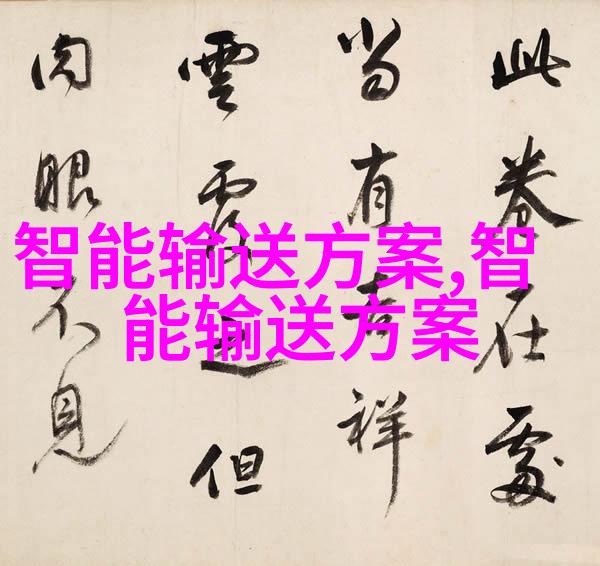 此卷在處
當有吉祥
雲覆但
肉眼不見
智能输送方案,智
能输送方案